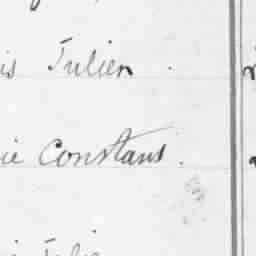 is Julien .
ie Constans .